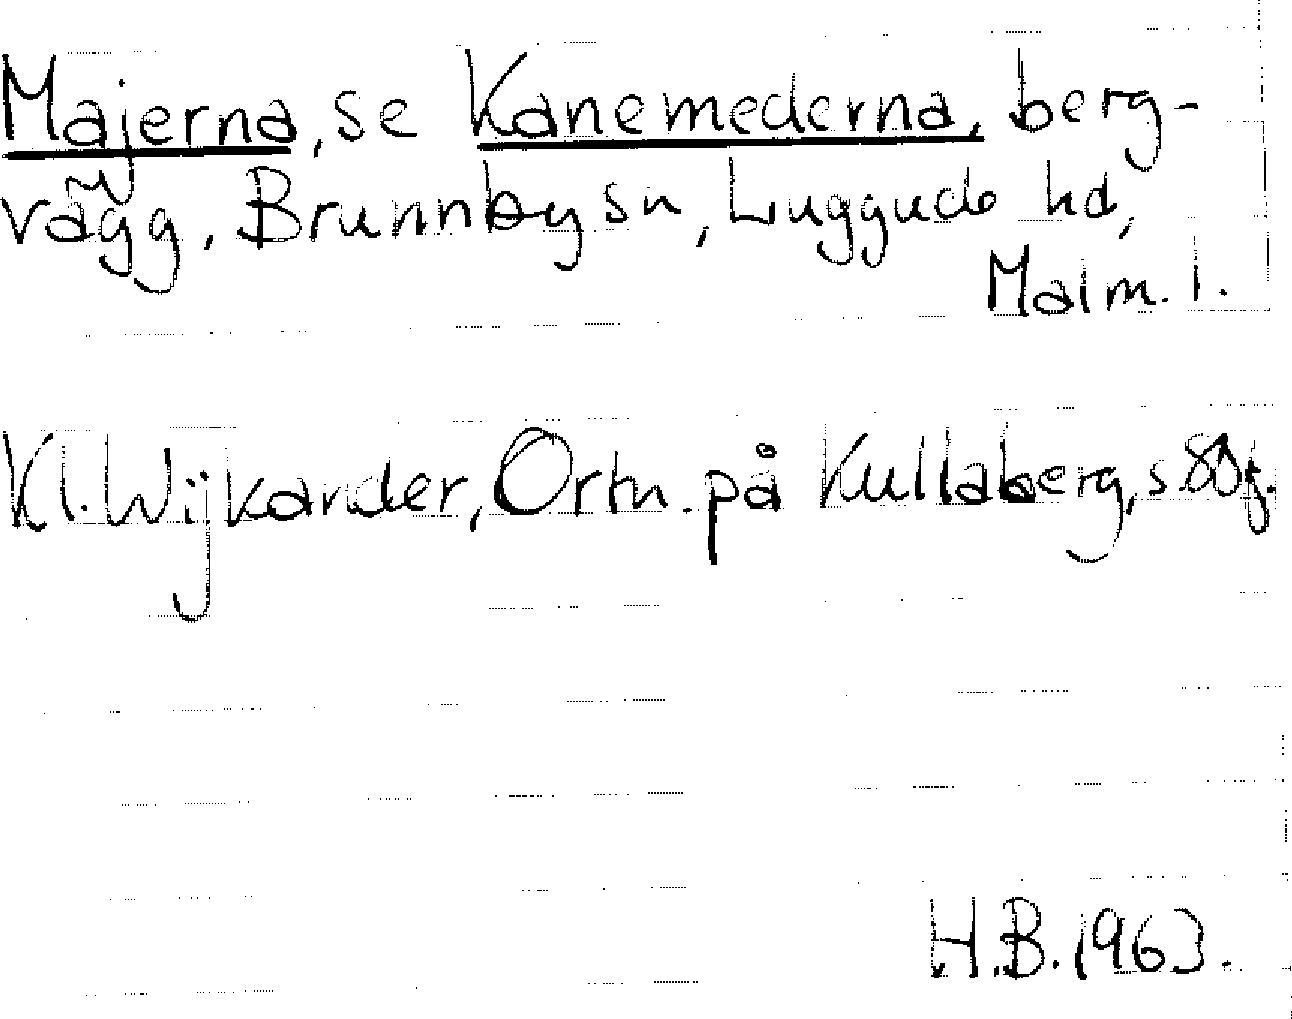 Majerna, se Kanemederna, berg-
vägg, Brunnby sn, Luggude hd,
Malm. l.
Kl. Wijkander, Ortn. på Kullaberg, s. 80 f.
H.B. 1963.